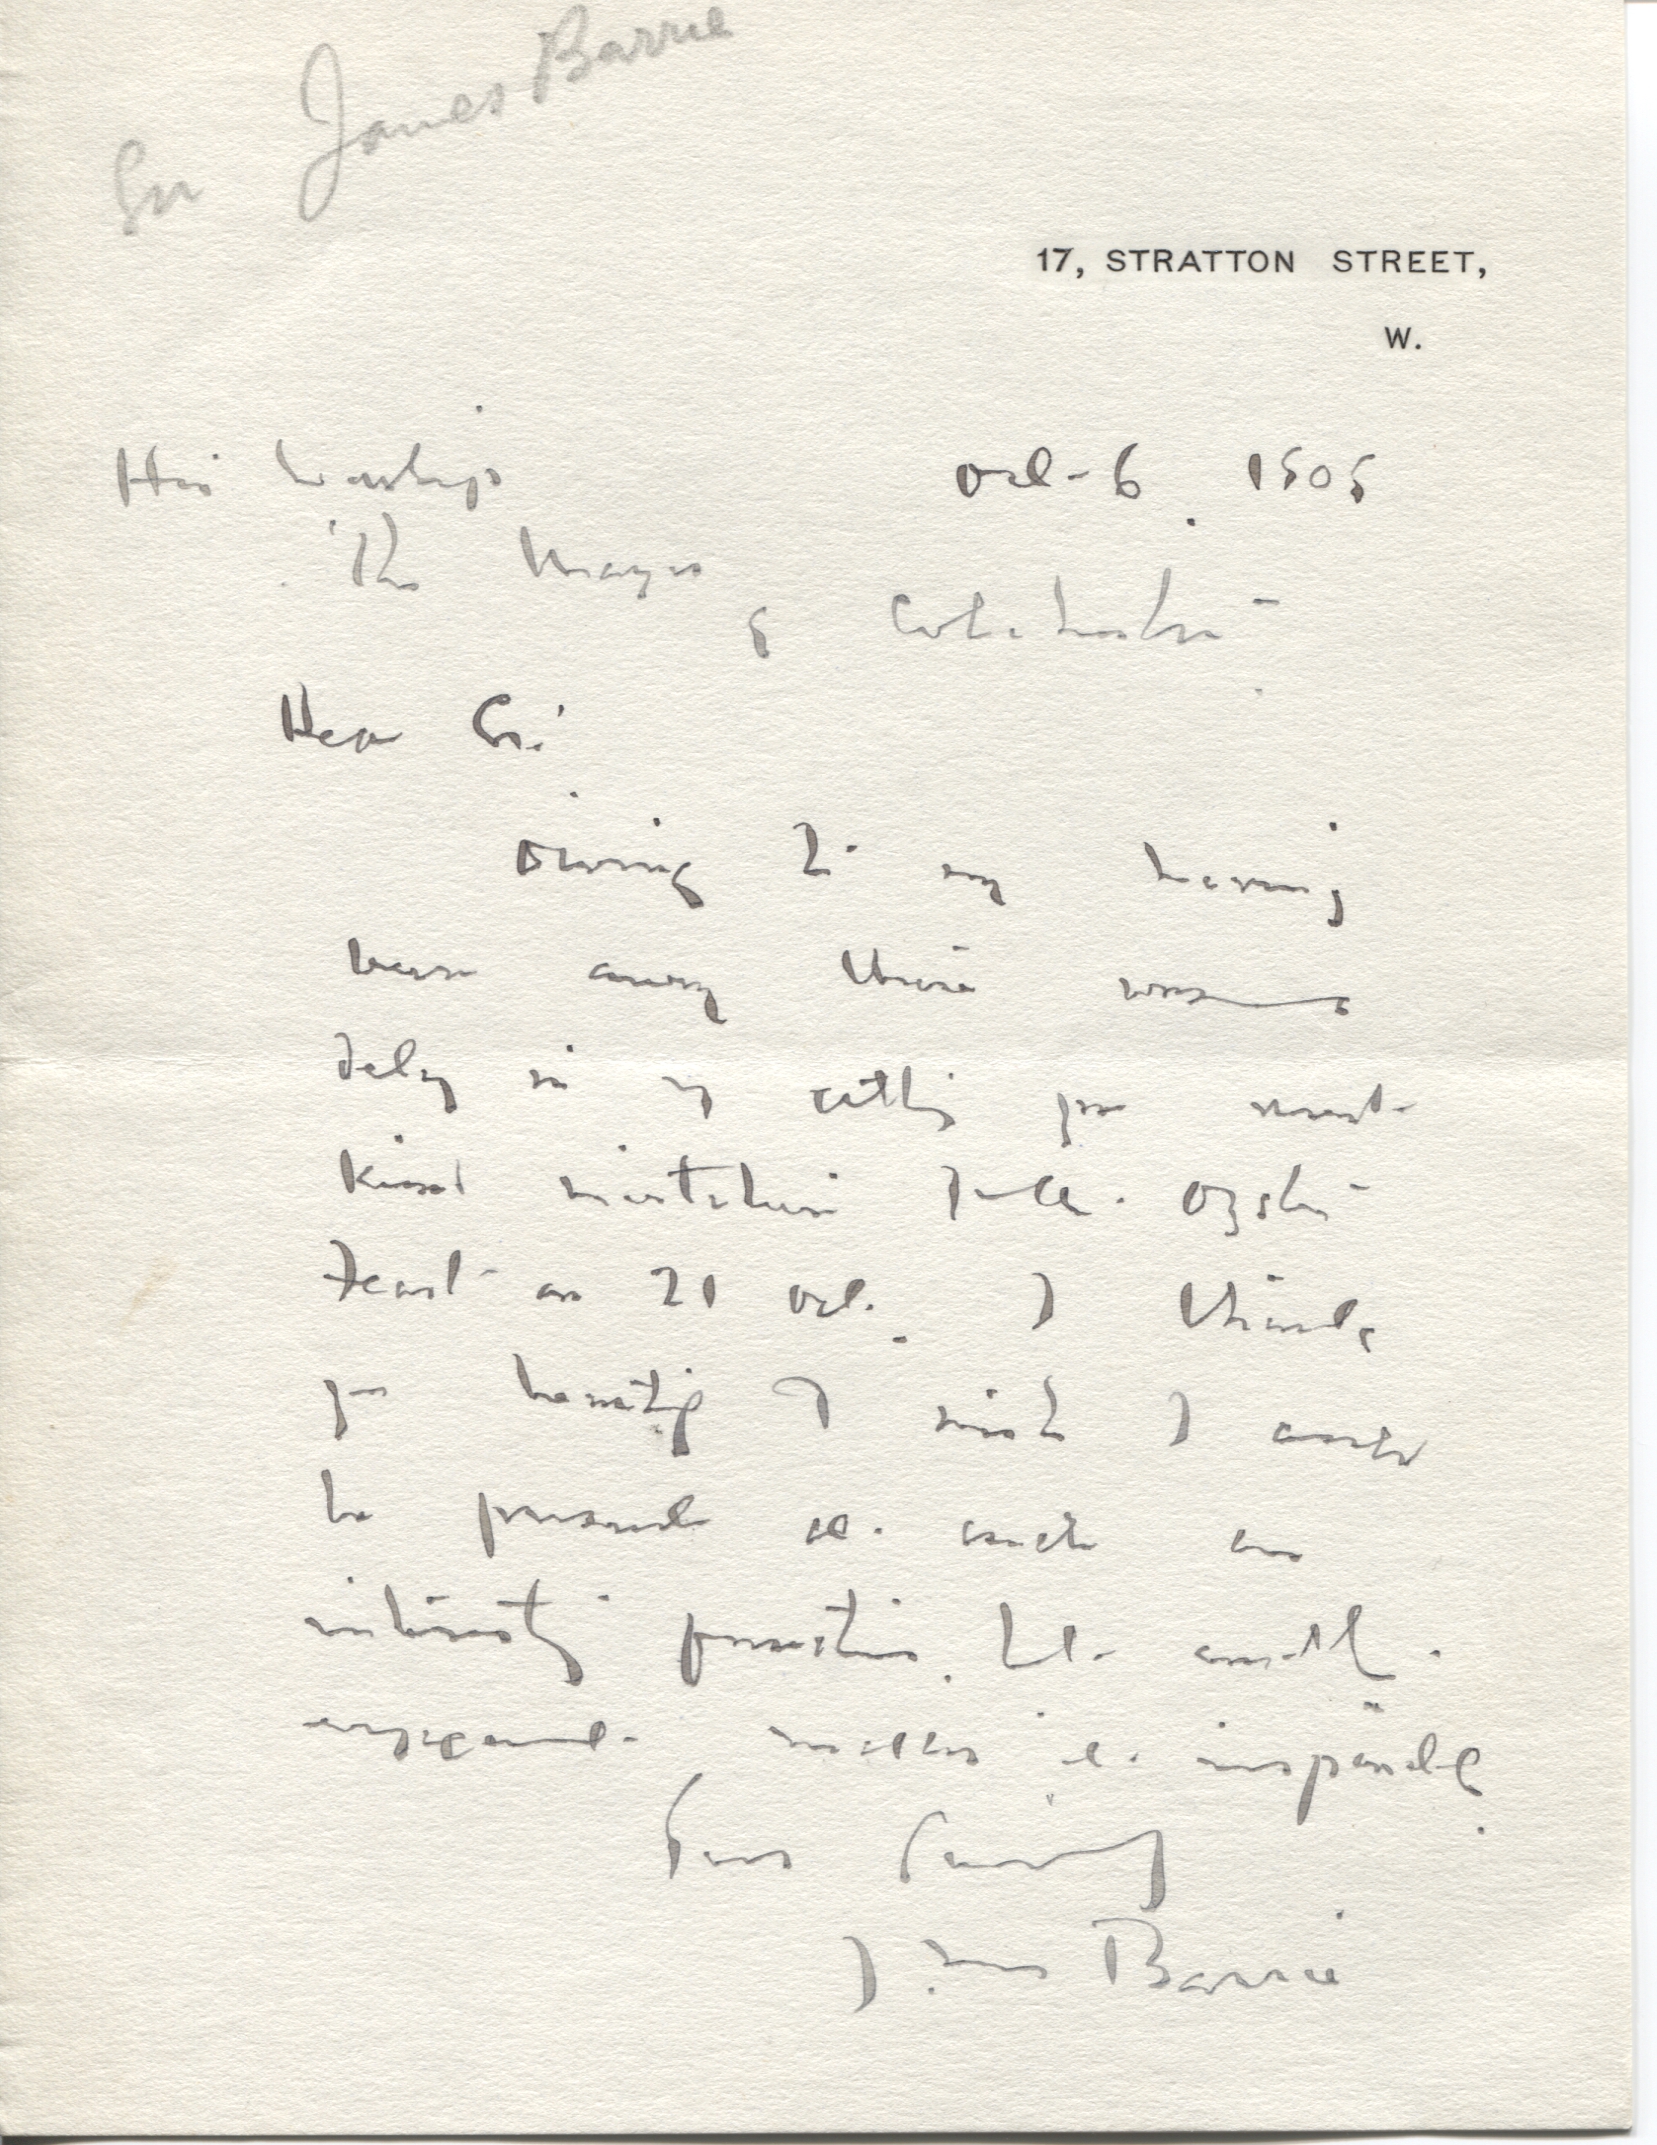 Sir James Barrie
17, STRATTON STREET,
W.
His Worship Oct 6. 1905
The Mayor
of Colchester
Dear Sir
Owing to my having
been away there was
delay in my getting your most
kind invitation to the Oyster
Feast on 20 Oct. I thank
you heartily & wish I could
be present at such an
interesting function, but another
engagement makes it impossible.
Yours sincerely
James Barrie